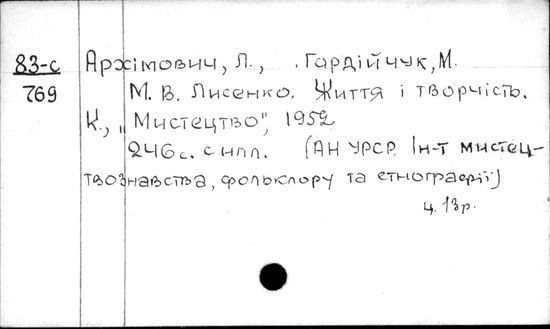 83-с Архімович, Л., Гордійчук, М.
769 М. В. Лисенко. Життя і творчість.
К., "Мистецтво", 1952
246с. с илл. (АН УРСР. Ін-т мистец-
твознавства, фольклору та етнографії)
ц. 13р.